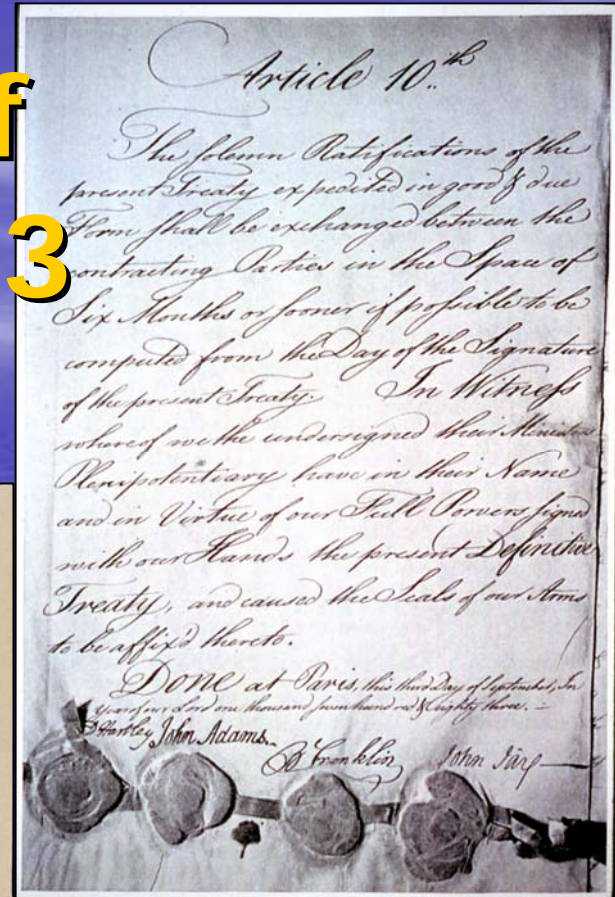 f
3
Article 10.th
The solemn Ratifications of the
present Treaty expedited in good & due
Form shall be exchanged between the
contracting Parties in the Space of
Six Months or sooner if possible to be
computed from the Day of the Signature
of the present Treaty. In Witness
whereof we the undersigned their Ministers
Plenipotentiary have in their Name
and in Virtue of our Full Powers signed
with our Hands the present Definitive
Treaty, and caused the Seals of our Arms
to be affix'd thereto.
Done at Paris, this third Day of September, In
the Year of our Lord one thousand seven hundred & Eighty three.
D Hartley John Adams. B Franklin John Jay